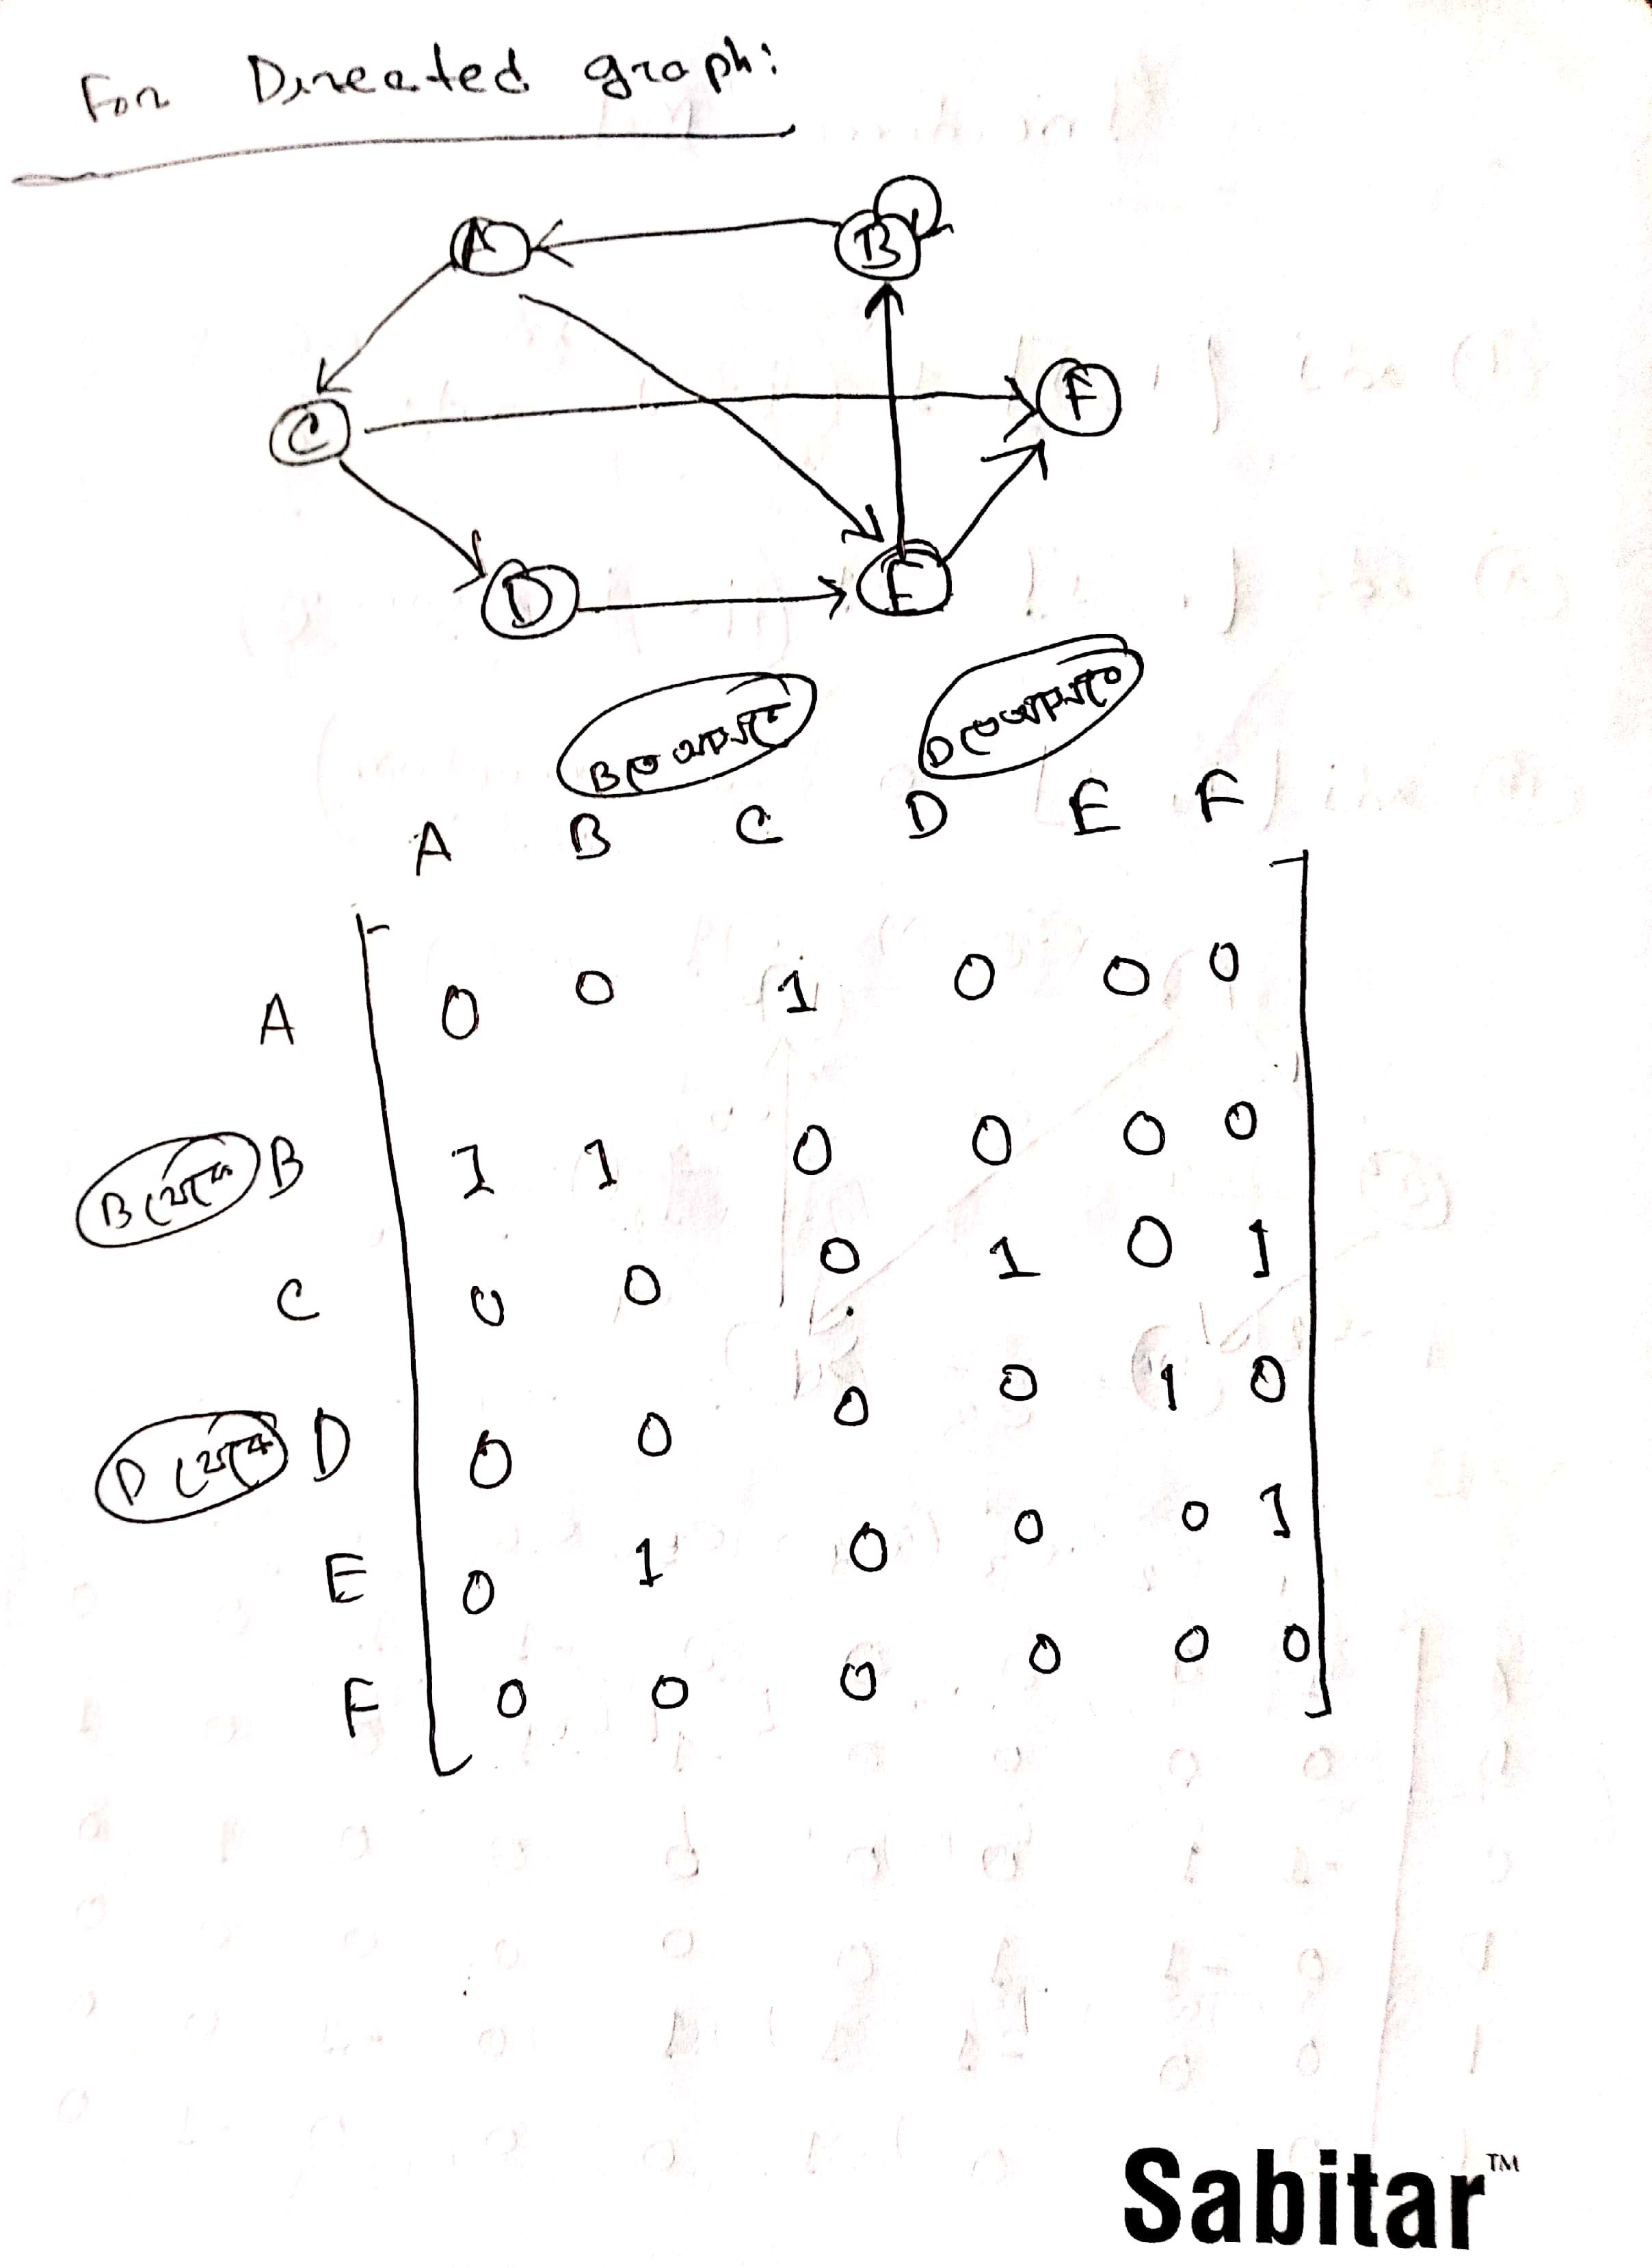 For Direcated graph:
A B
C F
D E
B তে আসতে D তে আসতে
A B C D E F
A 0 0 1 0 0 0
B থেকে B 1 1 0 0 0 0
C 0 0 0 1 0 1
D থেকে D 0 0 0 0 1 0
E 0 1 0 0 0 1
F 0 0 0 0 0 0
Sabitar™